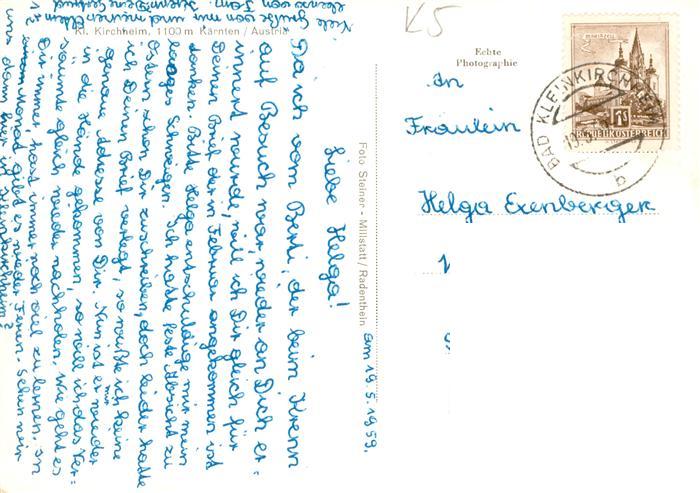 K5
Kl. Kirchheim, 1100 m Kärnten / Austria
Echte
Photographie
Foto Steiner - Millstatt / Radenthein
MARIAZELL
1S
REPUBLIK ÖSTERREICH
BAD KLEINKIRCHHEIM
b
An
Fräulein
Helga Exenberger
am 19.5.1959.
Liebe Helga!
Da ich vom Berti, der beim Krenn
auf Besuch war, wieder an Dich er-
innert wurde, will ich Dir gleich für
Deinen Brief der in Februar angekommen ist
danken. Bitte Helga entschuldige mir mein
langes Schweigen. Ich hatte feste Absicht zu
Ostern schon Dir zuschreiben, doch leider hatte
ich Deinen Brief verlegt, so wußte ich keine
genaue Adresse von Dir. Nun ist er mir wieder
in die Hände gekommen, so will ich das Ver-
säumte gleich wieder nachholen. Wie geht es
Dir immer, hast immer noch viel zu lernen. In
1½ Monat gibt es wieder Ferien. Sehen wir
uns dann hier in Kleinkirchheim?
Viele Grüße von mir und meinen Eltern
Deine Gertrud